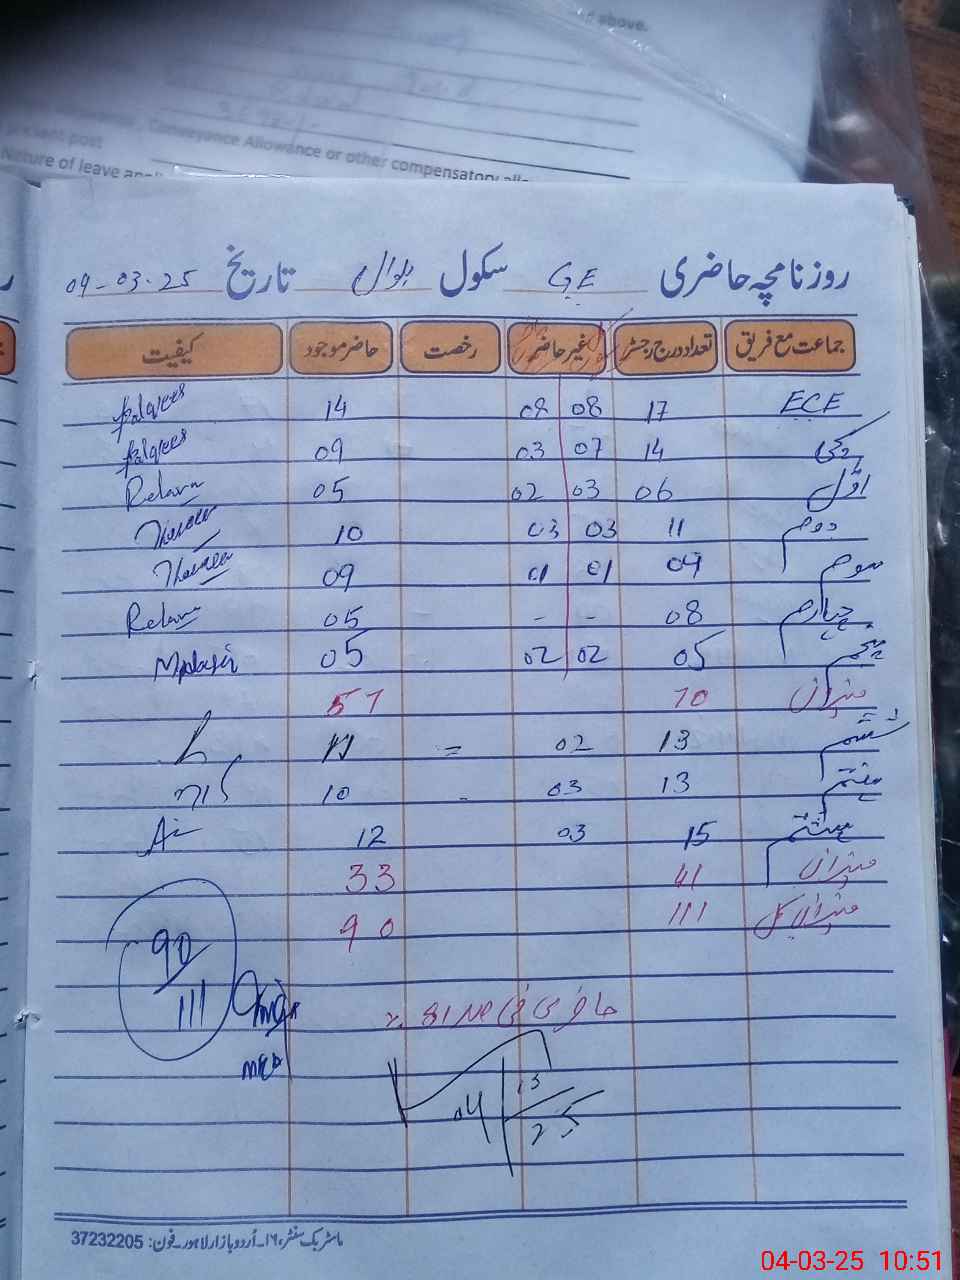 above.
Conveyance Allowance or other compensatory
present post
Nature of leave
روزنامچہ حاضری GE سکول تاریخ 04-03-25
جماعت مع فریق تعداد درج رجسٹر غیر حاضر رخصت حاضر موجود کیفیت
ECE 17 08 08 14
14 07 03 09
اوّل 06 03 02 05 Relana
دوم 11 03 03 10
سوم 09 01 01 09
چہارم 08 - - 05 Relana
پنجم 05 02 02 05
میزان 70 57
ششم 13 02 =
ہفتم 13 03 - 10
ہشتم 15 03 12
میزان 41 33
میزان کل 111 90
90
111
04 13
25
ماسٹر بک سنٹر، ۱۶۔اُردو بازار لاہور۔فون: 37232205
04-03-25 10:51